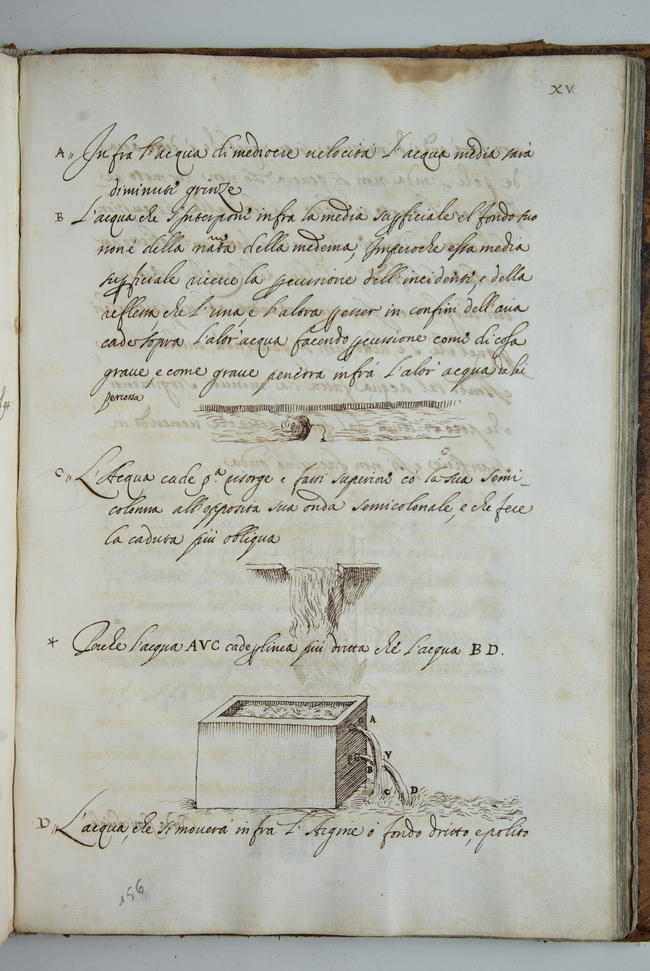 XV.
A„ Infra l'acqua di mediocre velocità l'acqua media sarà
diminuti grenze
B L'acqua che s'interponi infra la media supficiale el fondo suo
non è della nata della medema, Imperoche essa media
supficiale riceve la pcussione dell'incidenti, e della
reflessa che l'una e l'altra p esser in confini dell'aria
cade sopra l'alor'acqua facendo pcussione comi di cosa
grave, e come grave penetra infra l'alor acqua da lei
percossa
C„ L'Acqua cade pª risorge e fassi superiore cō la sua semi_
colonna all'opposita sua onda semicolonale, e che fece
la caduta più obliqua
* Perche l'acqua AVC cade p linea più dritta che l'acqua BD.
A
V
B
C D
D„ L'acqua, che si moverà infra l'Argine ò fondo dritto, e polito
156